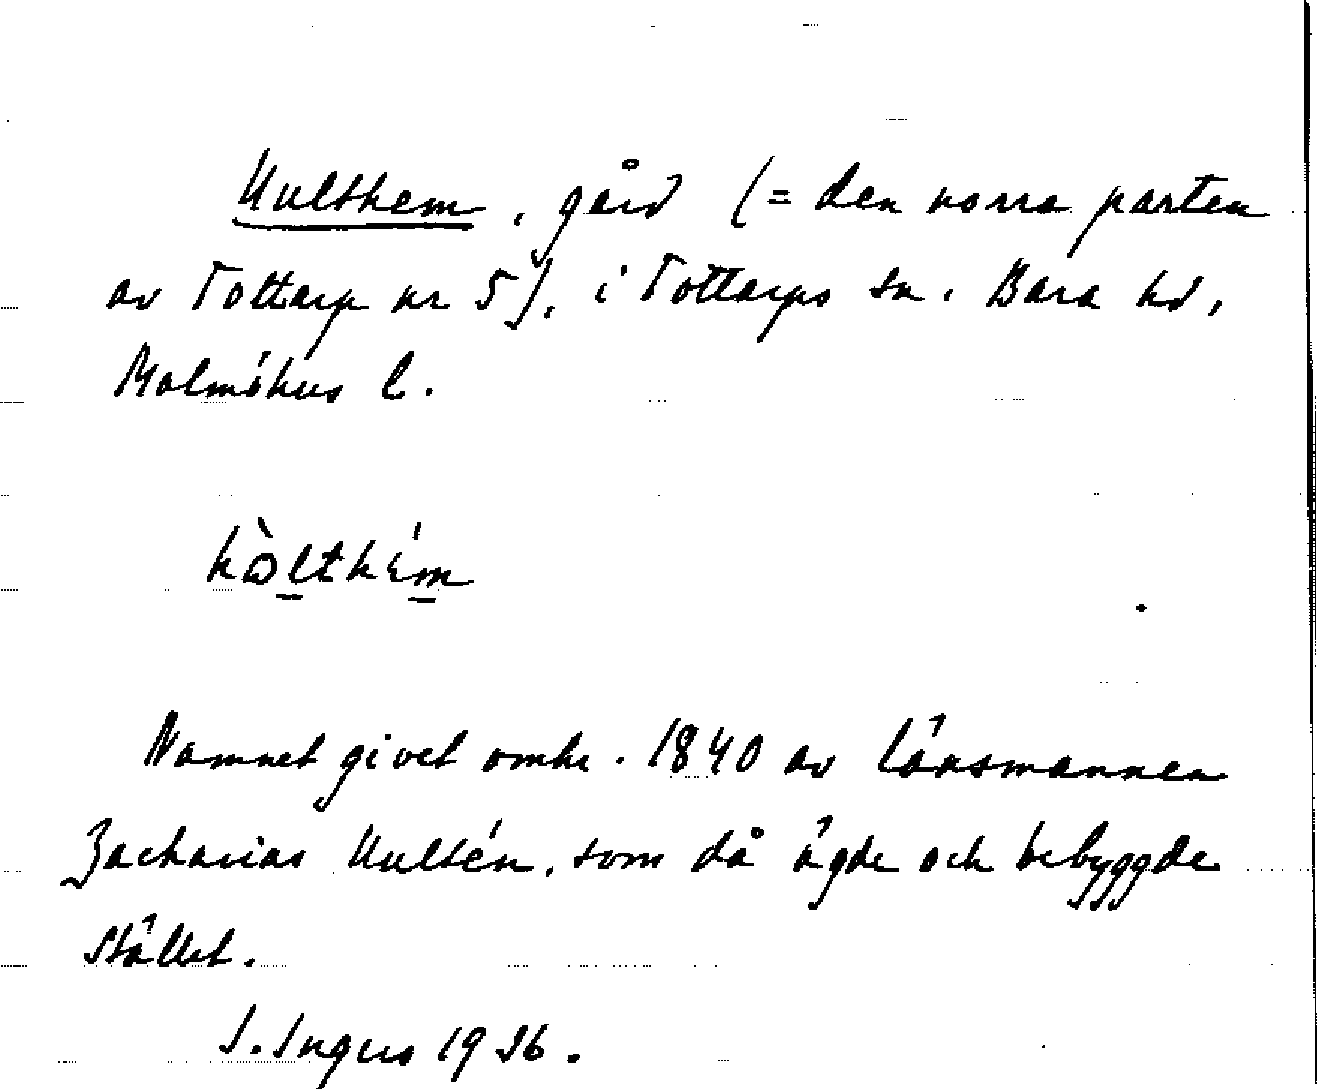 Hulthem, gård (= den norra parten
av Tottarp nr 5), i Tottarps sn, Bara hd,
Malmöhus l.
hòlthém
Namnet givet omkr. 1840 av länsmannen
Zacharias Hultén, som då ägde och bebyggde
stället.
S. Ingers 1936.